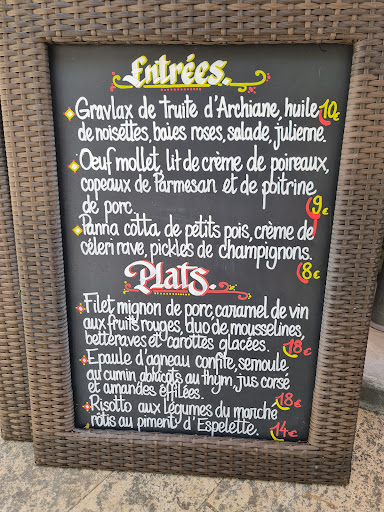 Entrées.
Gravlax de truite d'Archiane, huile 10€
de noisettes, baies roses, salade, julienne.
Oeuf mollet, lit de crème de poireaux,
copeaux de Parmesan et de poitrine
de porc. 9€
Panna cotta de petits pois, crème de
céleri rave, pickles de champignons.
8€
Plats.
Filet mignon de porc, caramel de vin
aux fruits rouges, duo de mousselines,
betteraves et carottes glacées. 18€
Epaule d'agneau confite, semoule
au cumin, abricots au thym, jus corsé
et amandes éffilées. 18€
Risotto aux légumes du marché
rôtis au piment d'Espelette. 14€